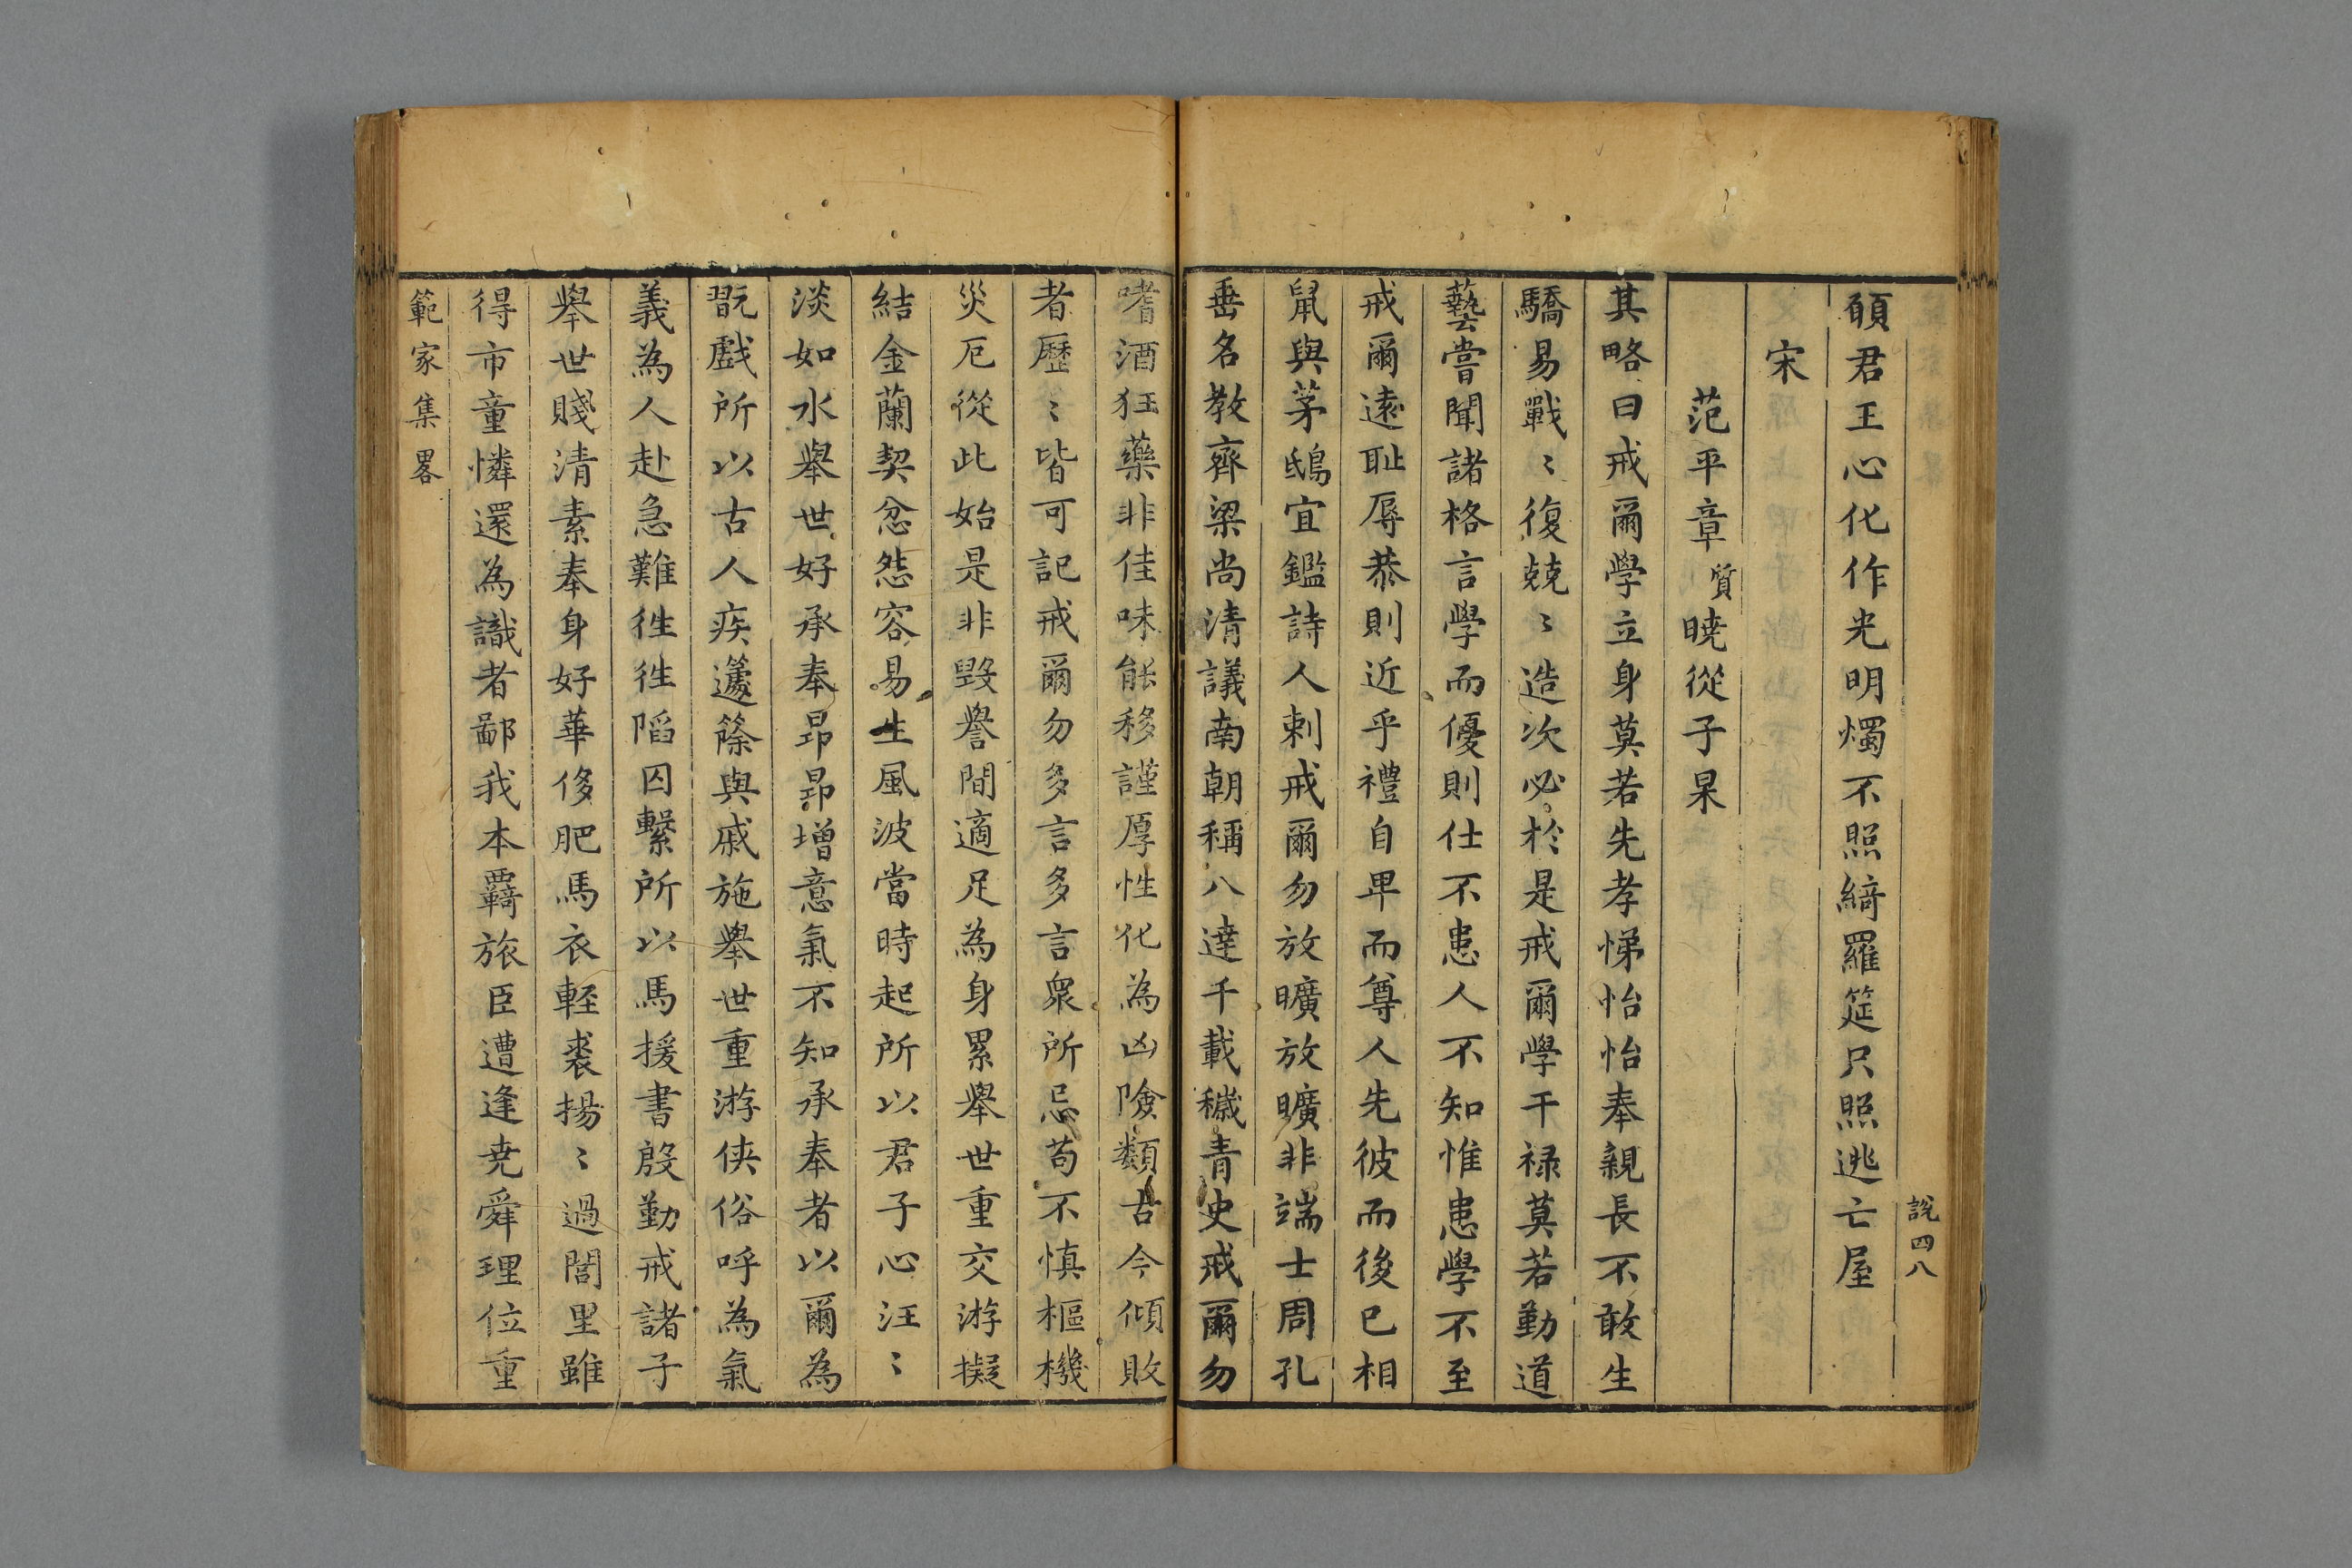 說四八
願君王心化作光明燭不照綺羅筵只照逃亡屋
宋
范平章質曉從子杲
其略曰戒爾學立身莫若先孝悌怡怡奉親長不敢生
驕易戰〻復兢〻造次必於是戒爾學干祿莫若勤道
藝嘗聞諸格言學而優則仕不患人不知惟患學不至
戒爾遠恥辱恭則近乎禮自卑而尊人先彼而後已相
鼠與茅鴟宜鑑詩人刺戒爾勿放曠放曠非端士周孔
垂名教齊梁尚清議南朝稱八達千載穢青史戒爾勿
嗜酒狂藥非佳味能移謹厚性化為凶險類古今傾敗
者歷〻皆可記戒爾勿多言多言衆所忌苟不慎樞機
災厄從此始是非毀譽間適足為身累舉世重交游擬
結金蘭契忿怨容易生風波當時起所以君子心汪〻
淡如水舉世好承奉昻昻增意氣不知承奉者以爾為
翫戲所以古人疾籧篨與戚施舉世重游俠俗呼為氣
義為人赴急難徃徃陷囚繫所以馬援書殷勤戒諸子
舉世賤清素奉身好華侈肥馬衣輕裘揚〻過閭里雖
得市童憐還為識者鄙我本羈旅臣遭逢堯舜理位重
範家集畧